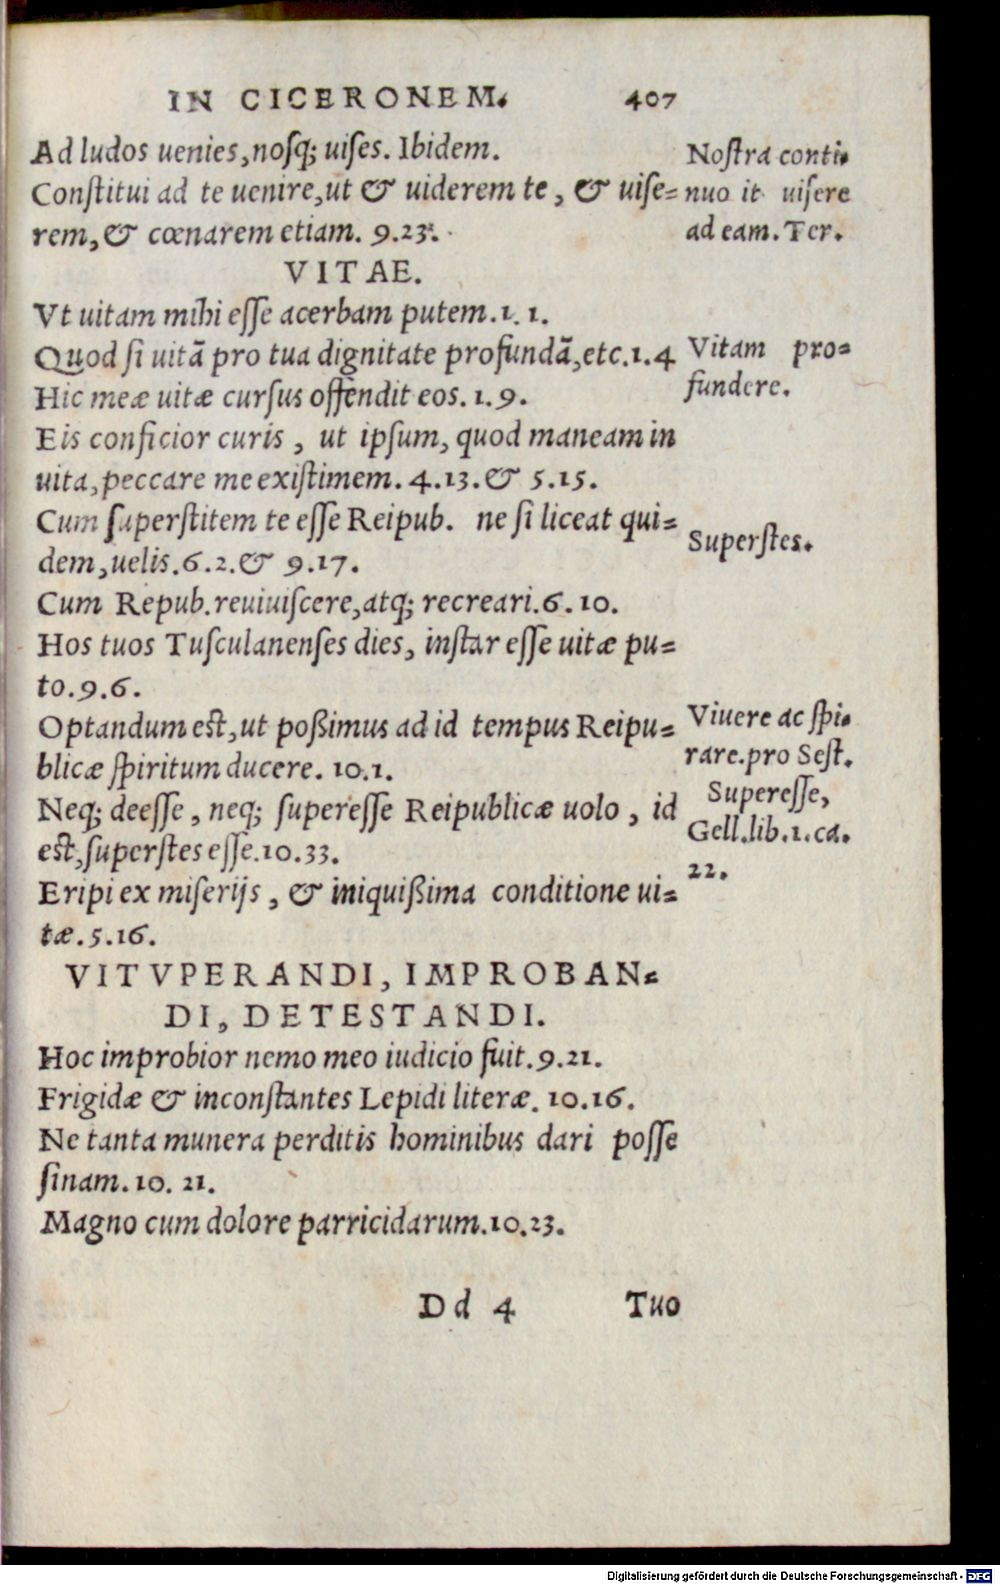 IN CICERONEM. 407
Ad ludos uenies, nosq; uises. Ibidem.
Constitui ad te uenire, ut & uiderem te, & uise=
rem, & cœnarem etiam. 9.23.
VITAE.
Vt uitam mihi esse acerbam putem. 1. 1.
Quod si uitā pro tua dignitate profundā, etc. 1. 4
Hic meæ uitæ cursus offendit eos. 1. 9.
Eis conficior curis, ut ipsum, quod maneam in
uita, peccare me existimem. 4.13. & 5.15.
Cum superstitem te esse Reipub. ne si liceat qui=
dem, uelis. 6. 2. & 9.17.
Cum Repub. reuiuiscere, atq; recreari. 6. 10.
Hos tuos Tusculanenses dies, instar esse uitæ pu=
to. 9. 6.
Optandum est, ut poßimus ad id tempus Reipu=
blicæ spiritum ducere. 10.1.
Neq; deesse, neq; superesse Reipublicæ uolo, id
est, superstes esse. 10. 33.
Eripi ex miserijs, & iniquißima conditione ui=
tæ. 5.16.
VITVPERANDI, IMPROBAN=
DI, DETESTANDI.
Hoc improbior nemo meo iudicio fuit. 9. 21.
Frigidæ & inconstantes Lepidi literæ. 10.16.
Ne tanta munera perditis hominibus dari posse
sinam. 10. 21.
Magno cum dolore parricidarum. 10.23.
Dd 4 Tuo
Nostra conti=
nuo it uisere
ad eam. Ter.
Vitam pro=
fundere.
Superstes.
Viuere ac spi=
rare. pro Sest.
Superesse,
Gell. lib. 1. ca.
22.
Digitalisierung gefördert durch die Deutsche Forschungsgemeinschaft - DFG